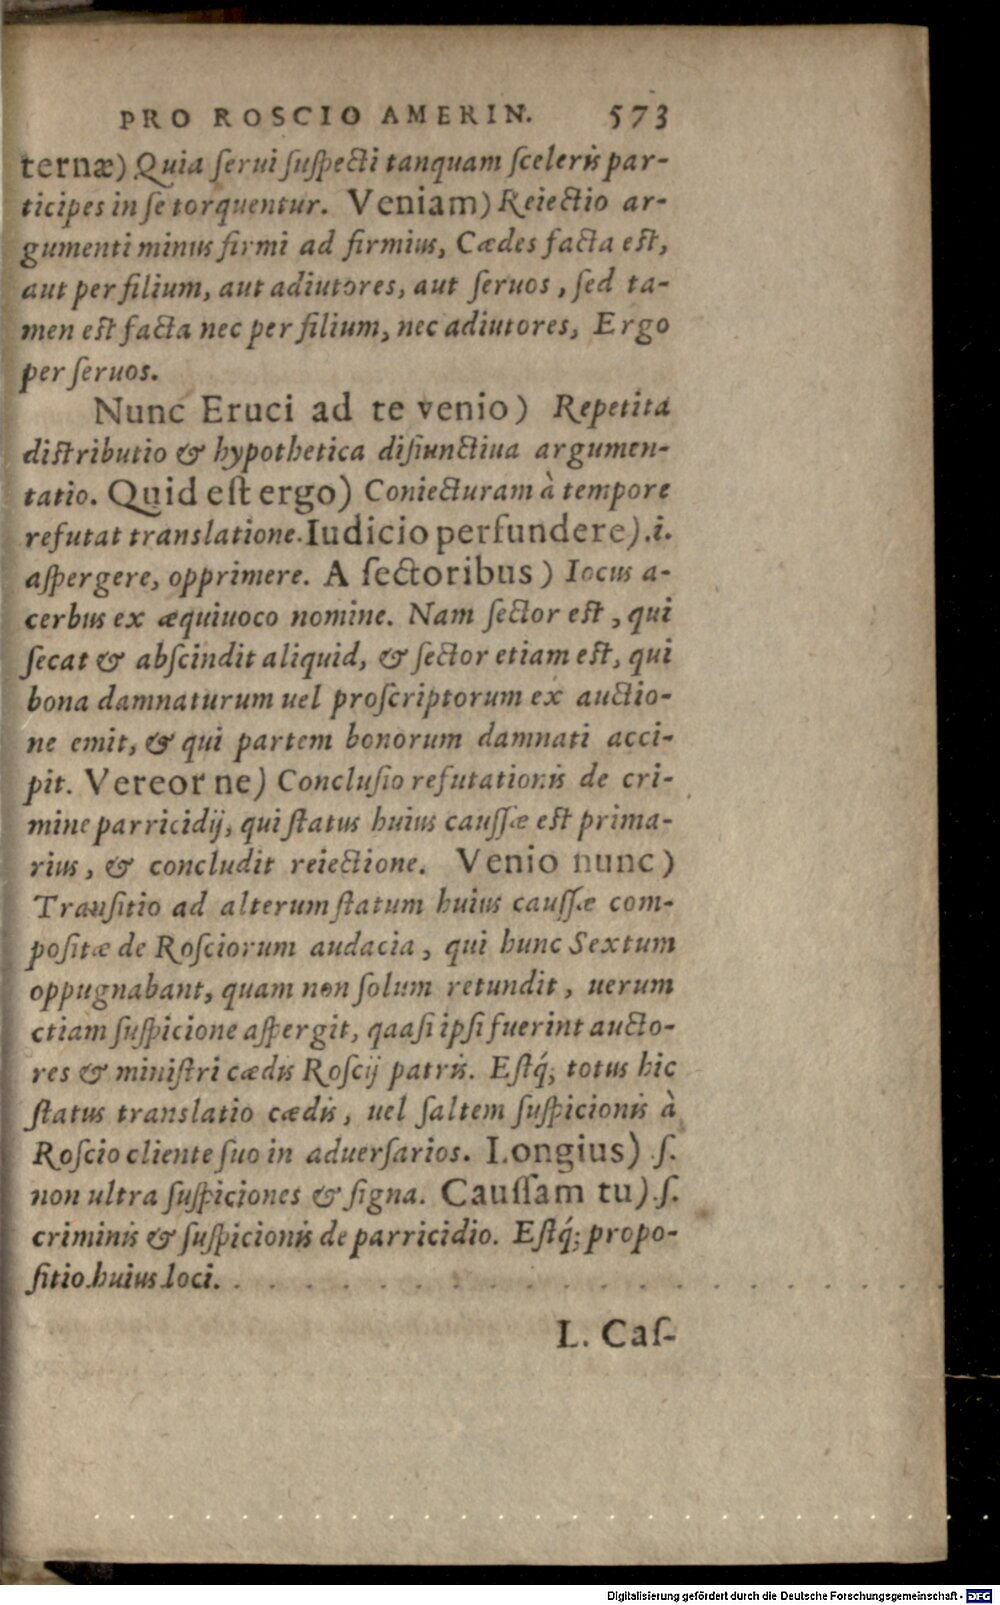 PRO ROSCIO AMERIN. 573
ternæ) Quia ſerui ſuſpecti tanquam ſceleris par-
ticipes in ſe torquentur. Veniam) Reiectio ar-
gumenti minus firmi ad firmius, Cædes facta eſt,
aut per filium, aut adiutores, aut ſeruos, ſed ta-
men eſt facta nec per filium, nec adiutores, Ergo
per ſeruos.
Nunc Eruci ad te venio) Repetita
diſtributio & hypothetica diſiunctiua argumen-
tatio. Quid eſt ergo) Coniecturam à tempore
refutat translatione. Iudicio perfundere).i.
aſpergere, opprimere. A ſectoribus) Iocus a-
cerbus ex æquiuoco nomine. Nam ſector eſt, qui
ſecat & abſcindit aliquid, & ſector etiam eſt, qui
bona damnaturum uel proſcriptorum ex auctio-
ne emit, & qui partem bonorum damnati acci-
pit. Vereor ne) Concluſio refutationis de cri-
mine parricidij, qui ſtatus huius cauſſæ est prima-
rius, & concludit reiectione. Venio nunc)
Trauſitio ad alterum ſtatum huius cauſſæ com-
poſitæ de Roſciorum audacia, qui hunc Sextum
oppugnabant, quam non ſolum retundit, uerum
etiam ſuſpicione aſpergit, qaaſi ipſi fuerint aucto-
res & miniſtri cædis Roſcij patris. Eſtq́; totus hic
ſtatus translatio cædis, uel ſaltem ſuſpicionis à
Roſcio cliente ſuo in aduerſarios. Longius) .ſ.
non ultra ſuſpiciones & ſigna. Cauſſam tu).ſ.
criminis & ſuſpicionis de parricidio. Eſtq́; propo-
ſitio huius loci.
L. Caſ-
Digitalisierung gefördert durch die Deutsche Forschungsgemeinschaft - DFG